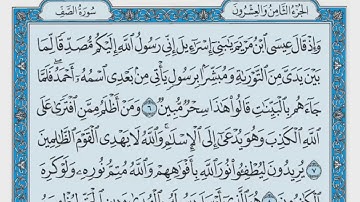 الجزء الثامن والعشرون سورة الصف
وَإِذْ قَالَ عِيسَى ٱبْنُ مَرْيَمَ يَٰبَنِىٓ إِسْرَٰٓءِيلَ إِنِّى رَسُولُ ٱللَّهِ إِلَيْكُم مُّصَدِّقًا لِّمَا
بَيْنَ يَدَىَّ مِنَ ٱلتَّوْرَىٰةِ وَمُبَشِّرًۢا بِرَسُولٍ يَأْتِى مِنۢ بَعْدِى ٱسْمُهُۥٓ أَحْمَدُ ۖ فَلَمَّا
جَآءَهُم بِٱلْبَيِّنَٰتِ قَالُوا۟ هَٰذَا سِحْرٌ مُّبِينٌ ٦ وَمَنْ أَظْلَمُ مِمَّنِ ٱفْتَرَىٰ عَلَى
ٱللَّهِ ٱلْكَذِبَ وَهُوَ يُدْعَىٰٓ إِلَى ٱلْإِسْلَٰمِ ۚ وَٱللَّهُ لَا يَهْدِى ٱلْقَوْمَ ٱلظَّٰلِمِينَ
٧ يُرِيدُونَ لِيُطْفِـُٔوا۟ نُورَ ٱللَّهِ بِأَفْوَٰهِهِمْ وَٱللَّهُ مُتِمُّ نُورِهِۦ وَلَوْ كَرِهَ